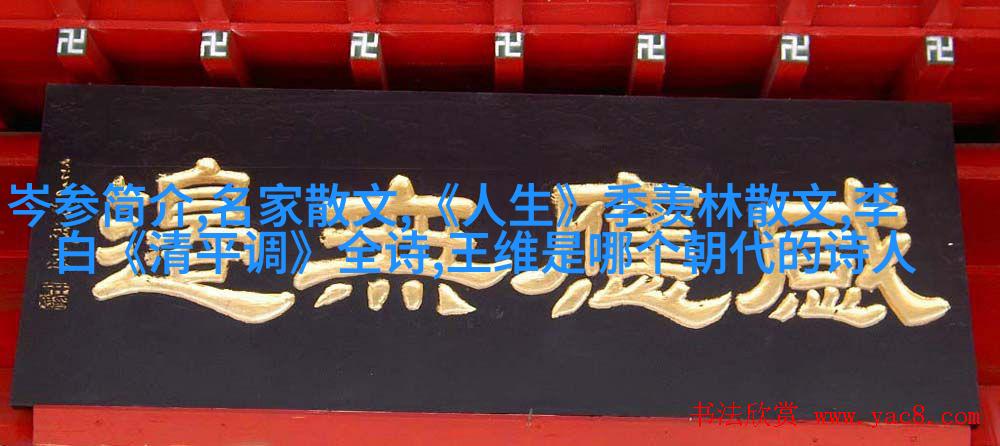 岑参简介,名家散文,《人生》季羡林散文,李
白《清平调》全诗,王维是哪个朝代的诗人
感應無邊
书法欣赏 www.yac8.com